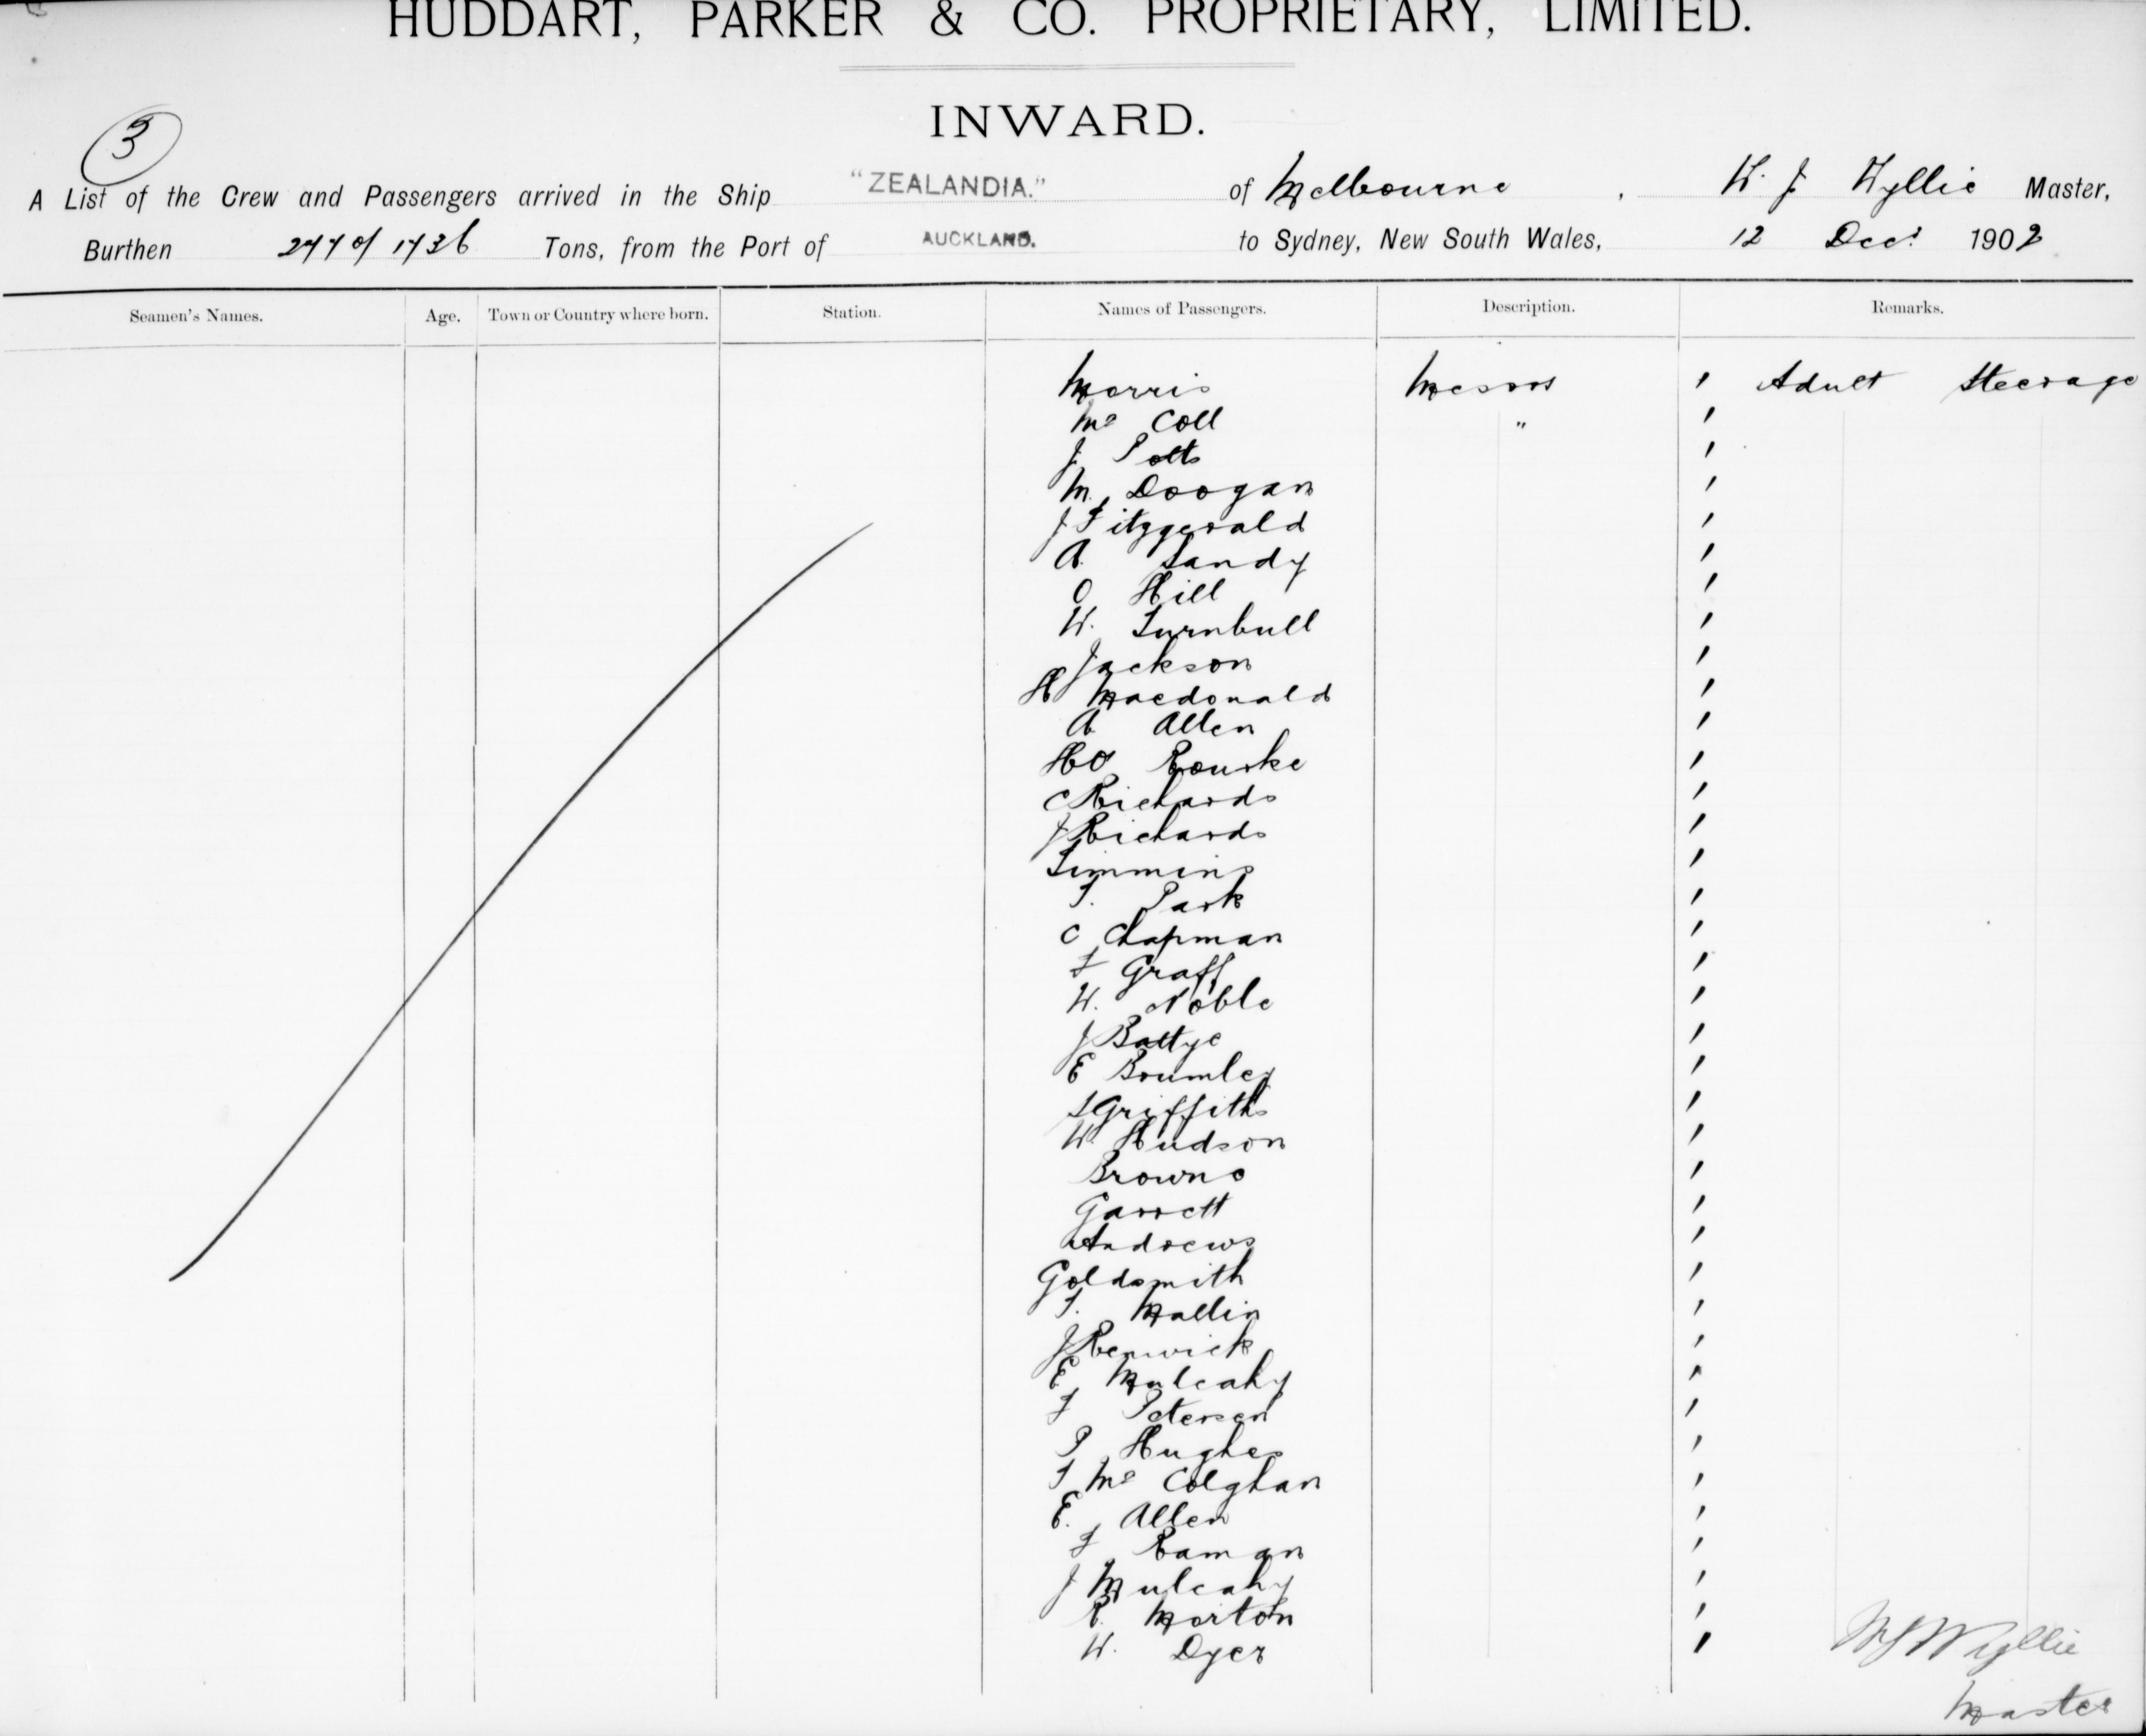 HUDDART, PARKER & CO. PROPRIETARY, LIMITED.
INWARD.
3
A List of the Crew and Passengers arrived in the Ship "ZEALANDIA." of Melbourne, W. J Wyllie Master,
Burthen of 1736 Tons, from the Port of AUCKLAND. to Sydney, New South Wales, 12 Decr 1902
Seamen's Names. Age. Town or Country where born. Station. Names of Passengers. Description. Remarks.
Morris Messrs 1 Adult Steerage
Mc Coll " 1
J Potts 1
M. Doogan 1
J Fitzgerald 1
A Sandy 1
O Hill 1
W. Turnbull 1
Jackson 1
H Macdonald 1
A Allen 1
H O Rourke 1
C Richards 1
J Richards 1
Timmins 1
T. Park 1
C Chapman 1
F Graff 1
W. Noble 1
J Battye 1
E Brumley 1
Griffiths 1
W Hudson 1
Browne 1
Garrett 1
Andrews 1
Goldsmith 1
T. Mallin 1
J Renwick 1
E Mulcahy 1
F Petersen 1
P Hughes 1
T Mc Colghan 1
E. Allen 1
F Raman 1
J Mulcahy 1
R. Morton 1
W. Dyer 1
WJ Wyllie
Master